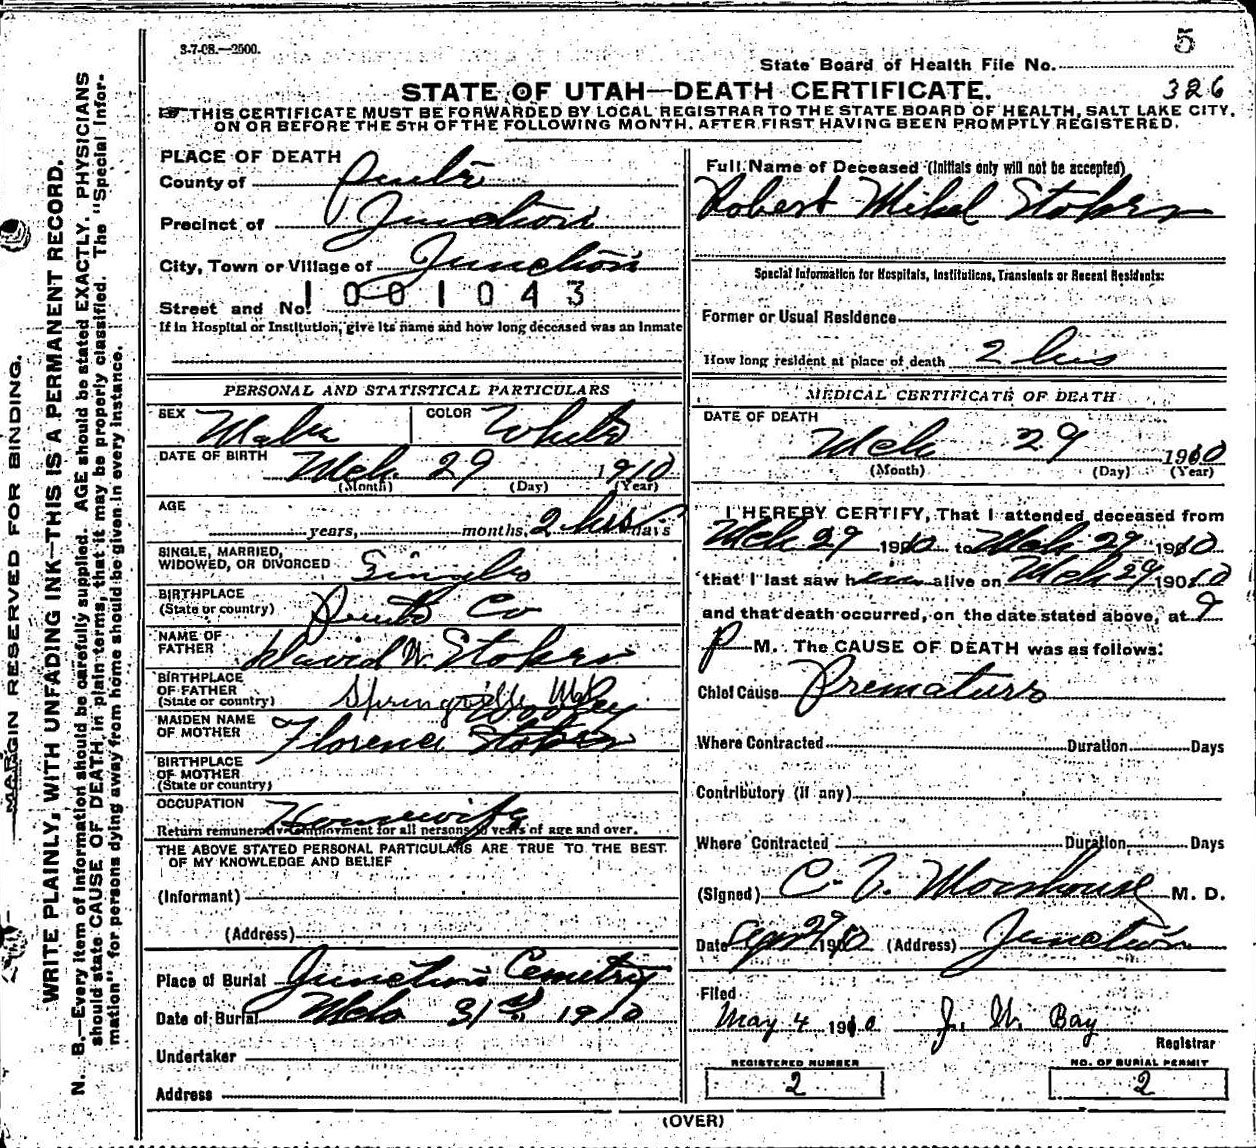 3-7-08.—2500.
5
State Board of Health File No.
STATE OF UTAH—DEATH CERTIFICATE.
326
THIS CERTIFICATE MUST BE FORWARDED BY LOCAL REGISTRAR TO THE STATE BOARD OF HEALTH, SALT LAKE CITY,
ON OR BEFORE THE 5TH OF THE FOLLOWING MONTH, AFTER FIRST HAVING BEEN PROMPTLY REGISTERED.
MARGIN RESERVED FOR BINDING.
WRITE PLAINLY, WITH UNFADING INK—THIS IS A PERMANENT RECORD.
N. B.—Every item of information should be carefully supplied. AGE should be stated EXACTLY. PHYSICIANS
should state CAUSE OF DEATH in plain terms, that it may be properly classified. The "Special Infor-
mation" for persons dying away from home should be given in every instance.
PLACE OF DEATH
County of Piute
Precinct of Junction
City, Town or Village of Junction
Street and No. 1001043
If in Hospital or Institution, give its name and how long deceased was an inmate
PERSONAL AND STATISTICAL PARTICULARS
SEX Male COLOR White
DATE OF BIRTH Mch 29 1910
(Month) (Day) (Year)
AGE
years, months, 2 hrs days
SINGLE, MARRIED,
WIDOWED, OR DIVORCED Single
BIRTHPLACE
(State or country) Piute Co
NAME OF
FATHER David W. Stoker
BIRTHPLACE
OF FATHER
(State or country) Springville Utah
Wooley
MAIDEN NAME
OF MOTHER Florence Stoker
BIRTHPLACE
OF MOTHER
(State or country)
OCCUPATION Housewife
Return remunerative employment for all persons 10 years of age and over.
THE ABOVE STATED PERSONAL PARTICULARS ARE TRUE TO THE BEST
OF MY KNOWLEDGE AND BELIEF
(Informant)
(Address)
Place of Burial Junction Cemetry
Date of Burial Mch 31st 1910
Undertaker
Address
Full Name of Deceased (Initials only will not be accepted)
Robert Mikel Stoker
Special Information for Hospitals, Institutions, Transients or Recent Residents:
Former or Usual Residence
How long resident at place of death 2 hrs
MEDICAL CERTIFICATE OF DEATH
DATE OF DEATH
Mch 29 1910
(Month) (Day) (Year)
I HEREBY CERTIFY, That I attended deceased from
Mch 29 1910 to Mch 29 1910
that I last saw him alive on Mch 29 1910
and that death occurred, on the date stated above, at 9
P M. The CAUSE OF DEATH was as follows:
Chief Cause Premature
Where Contracted Duration Days
Contributory (if any)
Where Contracted Duration Days
(Signed) C. V. Morehouse M. D.
Date 1910 (Address) Junction
Filed
May 4 1910 J. W. Bay
Registrar
REGISTERED NUMBER
2
NO. OF BURIAL PERMIT
2
(OVER)